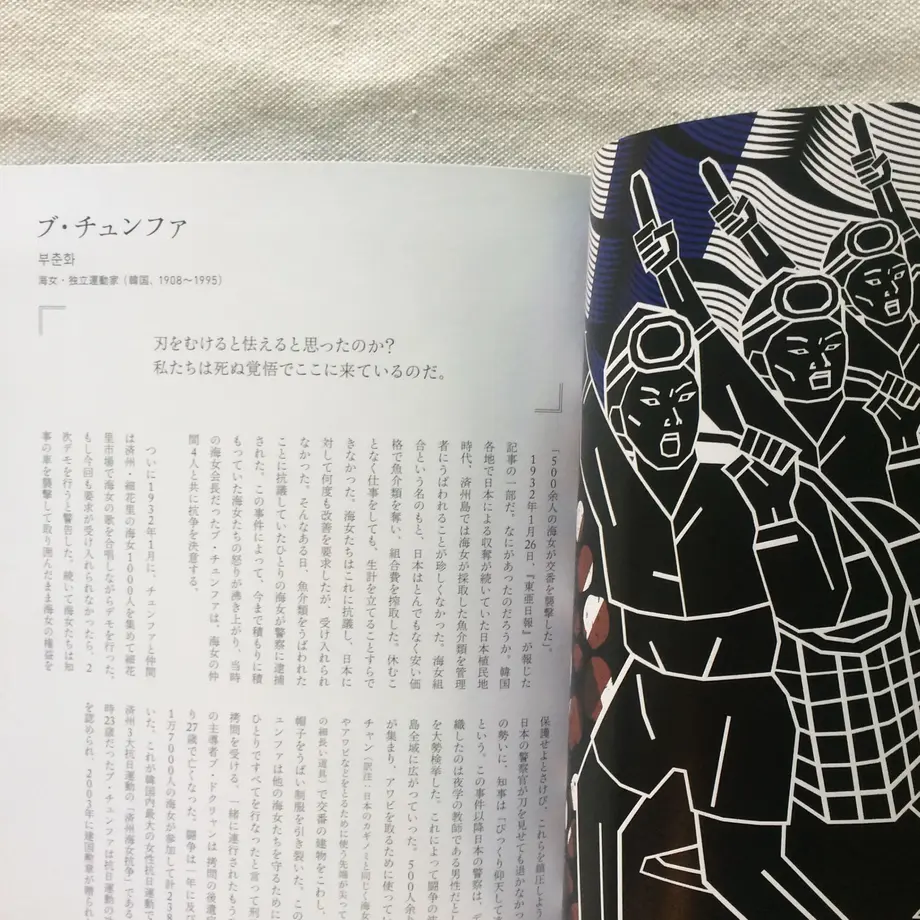 ブ・チュンファ
부춘화
海女・独立運動家（韓国、1908〜1995）
刃をむけると怯えると思ったのか?
私たちは死ぬ覚悟でここに来ているのだ。
「500余人の海女が交番を襲撃した」。
1932年1月26日、『東亜日報』が報じた
記事の一部だ。なにがあったのだろうか。韓国
各地で日本による収奪が続いていた日本植民地
時代、済州島では海女が採取した魚介類を管理
者にうばわれることが珍しくなかった。海女組
合という名のもと、日本はとんでもなく安い価
格で魚介類を奪い、組合費を搾取した。休むこ
となく仕事をしても、生計を立てることすらで
きなかった。海女たちはこれに抗議し、日本に
対して何度も改善を要求したが、受け入れられ
なかった。そんなある日、魚介類をうばわれた
ことに抗議していたひとりの海女が警察に逮捕
された。この事件によって、今まで積もりに積
もっていた海女たちの怒りが沸き上がり、当時
の海女会長だったブ・チュンファは、海女の仲
間4人と共に抗争を決意する。
ついに1932年1月に、チュンファと仲間
は済州・細花里の海女1000人を集めて細花
里市場で海女の歌を合唱しながらデモを行った。
もし今回も要求が受け入れられなかったら、2
次デモを行うと警告した。続いて海女たちは知
事の車を襲撃して取り囲んだまま海女の権益を
保護せよとさけび、これらを鎮圧しよう
日本の警察官が刀を見せても退かなかっ
の勢いに、知事は「びっくり仰天して
という。この事件以降日本の警察は、デ
織したのは夜学の教師である男性だと
を大勢検挙した。これによって闘争の
島全域に広がっていった。500人余り
が集まり、アワビを取るために使って
チャン（訳注：日本のカギノミと同じく海女
やアワビなどをとるために使う先端が尖って
の細長い道具）で交番の建物をこわし、
帽子をうばい制服を引き裂いた。この
ュンファは他の海女たちを守るために
ひとりですべてを行なったと言って刑
拷問を受ける。一緒に連行されたもう
の主導者ブ・ドクリャンは拷問の後遺
り27歳で亡くなった。闘争は一年に及び
1万7000人の海女が参加して計238
いた。これが韓国内最大の女性抗日運動で
済州3大抗日運動の「済州海女抗争」である
時23歳だったブ・チュンファは抗日運動の
を認められ、2003年に建国勲章が贈られ